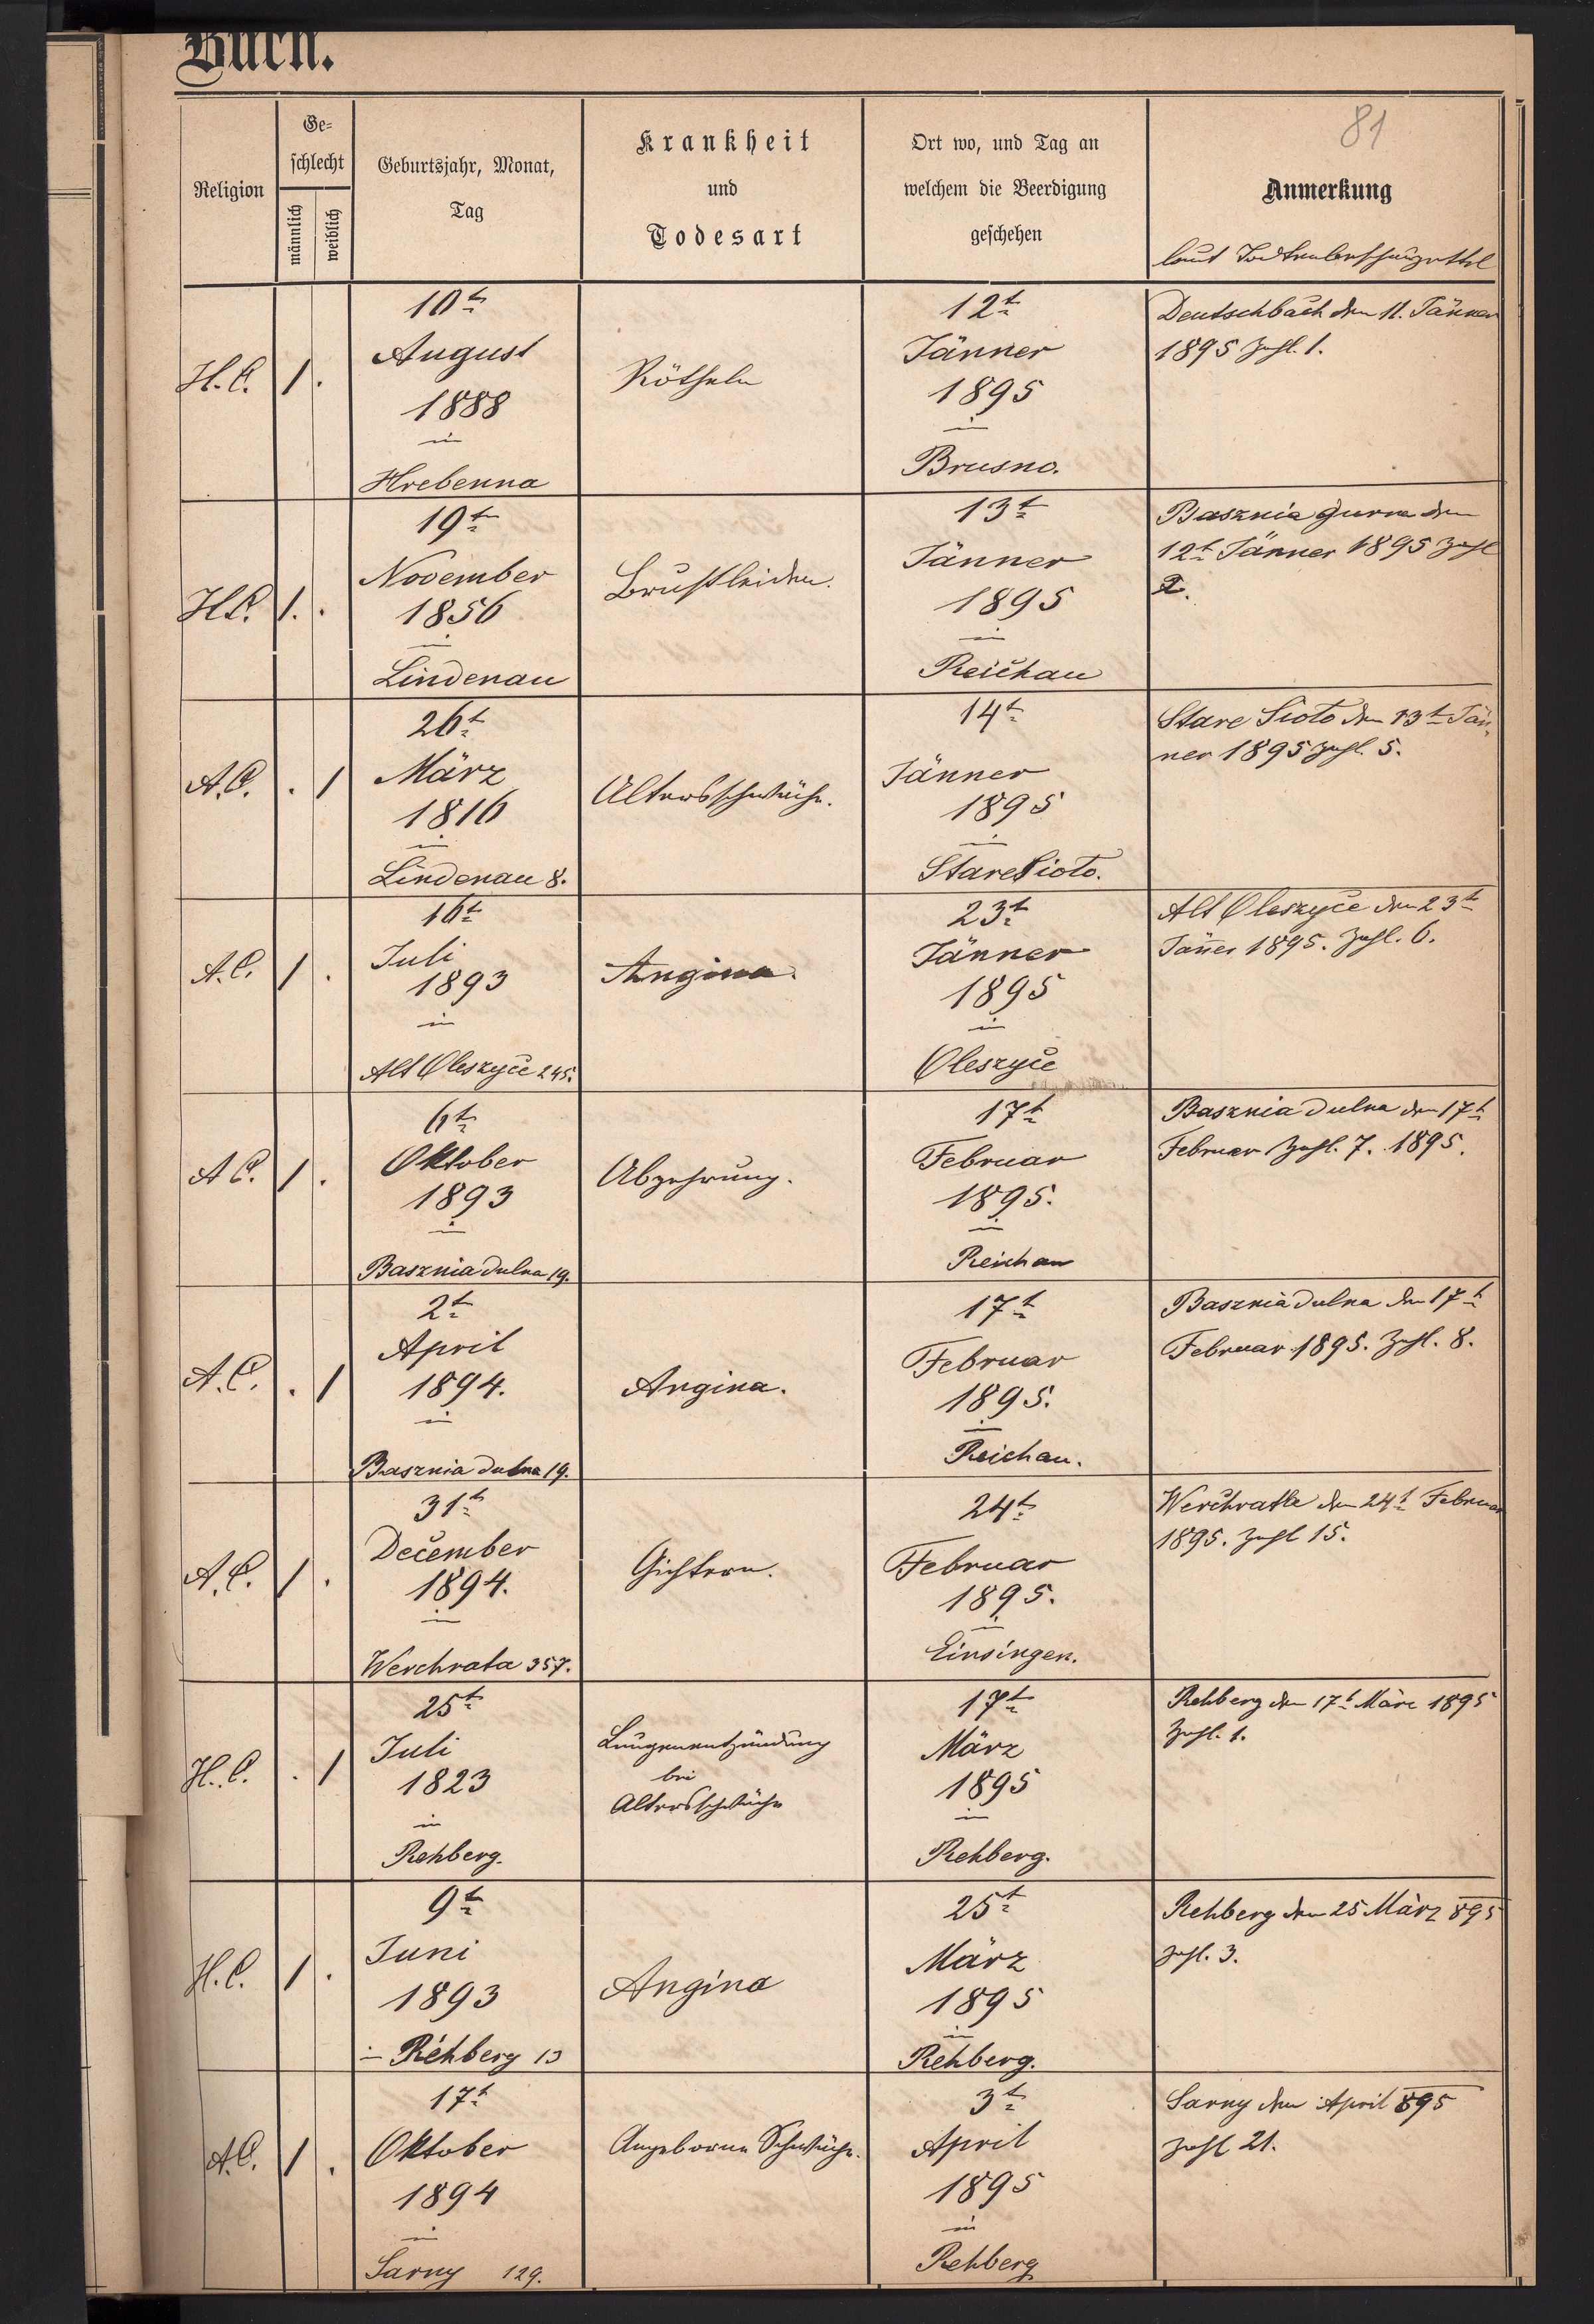 Buch.
81
Religion
Ge=
schlecht
männlich
weiblich
Geburtsjahr, Monat,
Tag
Krankheit
und
Todesart
Ort wo, und Tag an
welchem die Beerdigung
geschehen
Anmerkung
laut Todtenbeschauzettel
H.C.
1
.
10t
August
1888
in
Hrebenna
Rötheln
12t
Jänner
1895
in
Brusno.
Deutschbach den 11. Jänner
1895 Zahl. 1.
H.C.
1.
.
19t
November
1856
in
Lindenau
Brustleiden.
13t
Jänner
1895
in
Reichau
Basznia gurna den
12t Jänner 1895 Zahl
2.
A.C.
.
1
26t
März
1816
in
Lindenau 8.
Altersschwäche.
14t
Jänner
1895
in
Stare Sioto.
Stare Sioto den 13t Jän
ner 1895 Zahl. 5.
A.C.
1
.
16t
Juli
1893
in
Alt Oleszyce 245.
Angina.
23t
Jänner
1895
in
Oleszyce
Alt Oleszyce den 23t
Jäner 1895. Zahl. 6.
A C.
1
.
6t
Oktober
1893
in
Basznia dulna 19.
Abzehrung.
17t
Februar
1895.
in
Reichau
Basznia dulna den 17t
Februar Zahl. 7. 1895.
A.C.
.
1
2t
April
1894.
in
Basznia dulna 19.
Angina.
17t
Februar
1895.
in
Reichau.
Basznia dulna den 17t
Februar 1895. Zahl. 8.
A.C.
1
.
31t
December
1894.
in
Werchrata 357.
Gichtern.
24t
Februar
1895.
in
Einsingen.
Werchratta den 24t Februar
1895. Zahl 15.
H.C.
.
1
25t
Juli
1823
in
Rehberg.
Lungenentzündung
bei
Altersschwäche
17t
März
1895
in
Rehberg.
Rehberg den 17t März 1895
Zahl. 1.
H.C.
1
.
9t
Juni
1893
in Rehberg 13
Angina
25t
März
1895
in
Rehberg.
Rehberg den 25 März 895
Zahl. 3.
A.C.
1
.
17t
Oktober
1894
in
Sarny 129.
Angeborne Schwäche.
3t
April
1895
in
Rehberg
Sarny den April 895
Zahl 21.